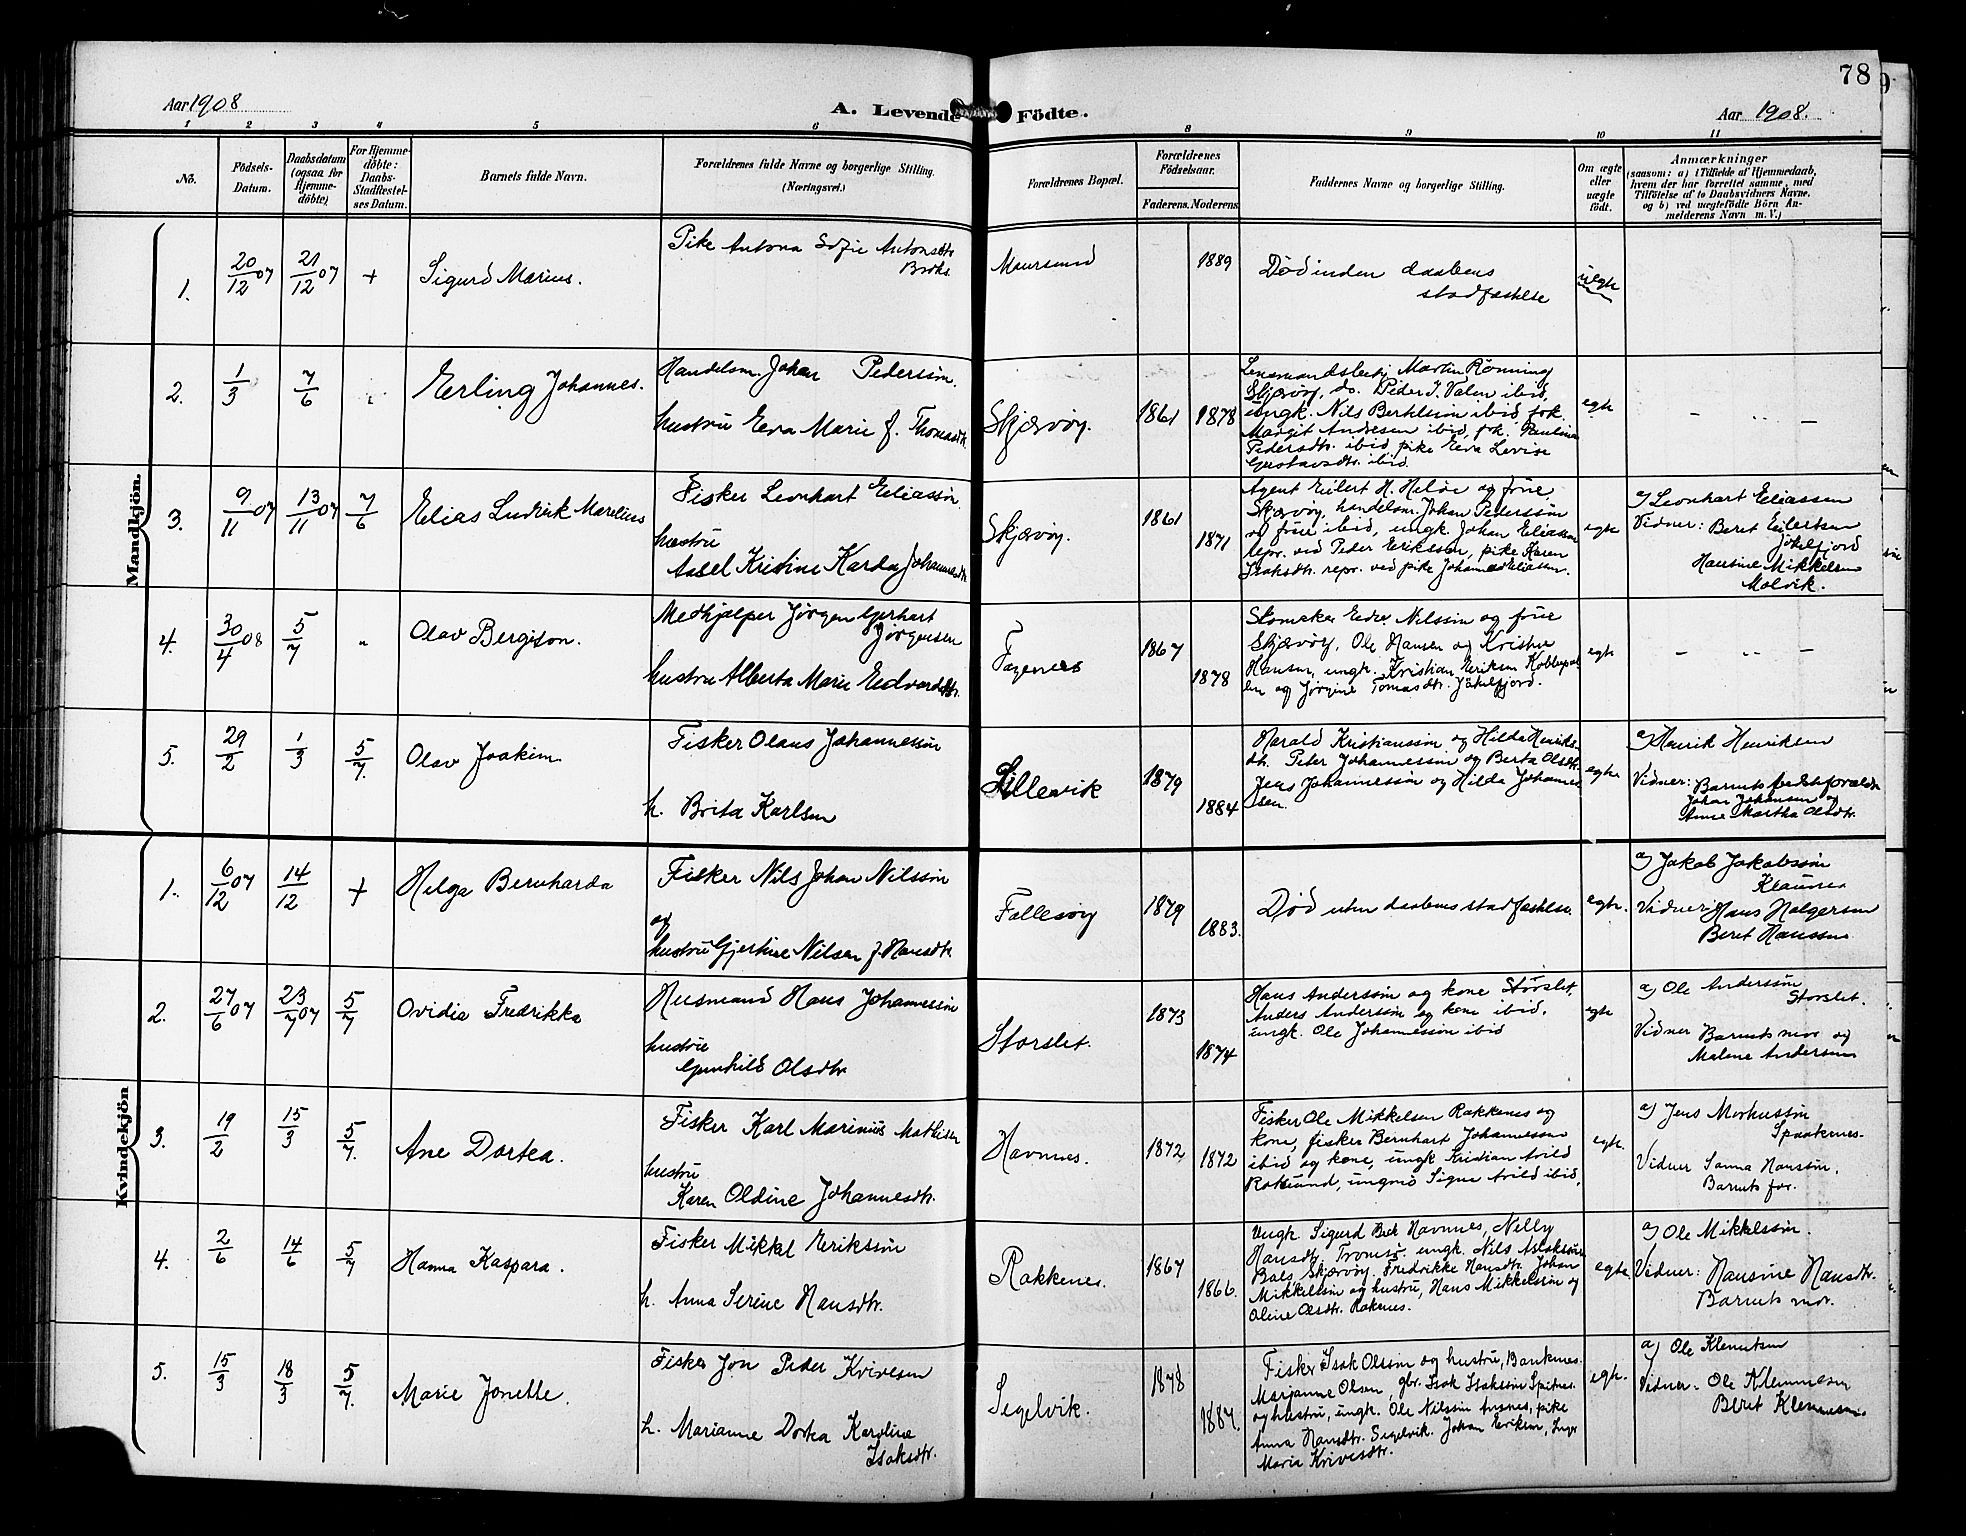 78
Aar 1908
A. Levende Födte.
Aar 1908.
1 2 3 4 5 6 8 9 10 11
No.
Födsels-
Datum.
Daabsdatum
(ogsaa for
Hjemme-
döbte)
For Hjemme-
döbte:
Daabs-
Stadfæstel-
ses Datum.
Barnets fulde Navn.
Forældrenes fulde Navne og borgerlige Stilling.
(Næringsvei.)
Forældrenes Bopæl.
Forældrenes
Födselsaar.
Faderens. Moderens.
Faddernes Navne og borgerlige Stilling.
Om ægte
eller
uægte
födt.
Anmærkninger
(saasom: a) i Tilfælde af Hjemmedaab,
hvem der har forrettet samme, med
Tilföielse af to Daabsvidners Navne.
og b) ved uægtefödte Börn An-
melderens Navn m. V.)
Mandkjön.
1.
20/12 07
21/12 07
+
Sigurd Marius.
Pike Antona Sofie Antonsdtr
Maursund
1889
Död inden daabens
stadfæstelse
uegte
2.
1/3
7/6
Erling Johannes.
Handelsm. Johan Pederssön.
hustru Eva Marie f. Thomasdtr.
Skjærvöy.
1861
1878
Martin Rönning
Skjærvöy, do. Peder J. Valen ibid,
ungk. Nils Bertelssön ibid, frk.
Margit Andresen ibid, frk. Paulina
Pedersdtr. ibid, pike Eva Lovise
Gustavsdtr. ibid.
egte
3.
9/11 07
13/11 07
7/6
Elias Ludvik Marelius
Fisker Leonhart Eliassön
hustru
Aasel Kristine Karda Johannesdtr
Skjærvöy.
1861
1871
Agent Eilert H. Heløe og frue,
Skjærvöy, handelsm. Johan Pederssön
og frue ibid, ungk. Johan Eliassen
repr. ved Peder Erikssön, pike Karen
Isaksdtr. repr. ved pike Johanna Eliassen.
egte
a) Leonhart Eliassen
Vidner: Beret Eilertsen
Jökelfjord
Hansine Mikkelsen
Molvik.
4.
30/4 08
5/7
"
Olav Bergeson.
Medhjælper Jörgen Gerhart
Jörgensen
hustru Alberta Marie Edvardsdtr.
Tagenes
1867
1878
Skomaker Nilssön og frue
Skjærvöy, Ole Hansen og Kristine
Hansen, ungk. Kristian Eriksen
og Jörgine Tomasdtr. Jökelfjord.
egte
5.
29/2
1/3
5/7.
Olav Joakim.
Fisker Olaus Johannessön
h. Brita Karlsen
Lillevik
1879
1884
Harald Kristianssön og Hilda Henriks-
dtr. Peter Johannessön og Berta Olsdtr.
Jens Johannessön og Hilda Johannes-
sen.
egte
a) Henrik Henriksen
Vidner: Barnets
Johan Johansen og
Anne Martha Olsdtr.
Kvindekjön
1.
6/12 07
14/12
+
Helga Bernharda
Fisker Nils Johan Nilssön
og
hustru Gjertine Nilsen f. Hansdtr.
Follesöy
1879
1883.
Död uten daabens stadfæstelse.
egte.
a) Jakob Jakobssön
Vidner: Hans Holgersen
Beret Hanssen
2.
27/6 07
23/7 07
5/7
Ovidia Fredrikke
Husmand Hans Johannessön
hustru
Gunhild Olsdtr
Storslet.
1873
1874
Hans Anderssön og kone Storslet,
Anders Anderssön og kone ibid,
ungk. Ole Johannessön ibid
egte
a) Ole Anderssön
Storslet.
Vidner Barnets mor og
Malene Andersen
3.
19/2
15/3
5/7.
Ane Dortea.
Fisker Karl Marinius Mathisen
hustru
Karen Oldine Johannesdtr.
Havnnes.
1872
1872
Fisker Ole Mikkelsen Rakkenes og
kone, fisker Bernhart Johannessen
ibid og kone, ungk. Kristian Arild
Roksund, ungmö Signe Arild ibid.
egte.
a) Jens Morhussön
Spaaknes.
Vidner Sanna Hanssön.
Barnets far.
4.
2/6
14/6
5/7
Hanna Kaspara.
Fisker Mikkel Erikssön
h. Anna Serine Hansdtr.
Rakkenes.
1867
1866.
Ungk. Sigurd Beck Havnnes, Nelly
Hansdtr. Tromsö, ungk. Nils Aslakssön
Bals Skjærvöy, Fredrikke Hansdtr. Johan
Mikkelsön og hustru, Hans Mikkelsön og
Oline Olsdtr. Rakenes.
egte
a) Ole Mikkelssön.
Vidner: Hansine Hansdtr.
Barnets mor.
5.
15/3
18/3
5/7.
Marie Jonette.
Fisker Jon Peder Kvivesen
h. Marianne Dortea Karoline
Isaksdtr.
Segelvik.
1878
1887.
Fisker Isak Olssön og hustru,
Marjanne Olsen, gbr. Isak Isakssön Spitnes
og hustru, ungk. Ole Nilssön pike
Anna Hansdtr. Segelvik. Johan Eriksen, Inger
Maria Krivesdtr.
egte.
a) Ole Klemetsen
Vidner: Ole Klemmesen
Beret Klemesen.